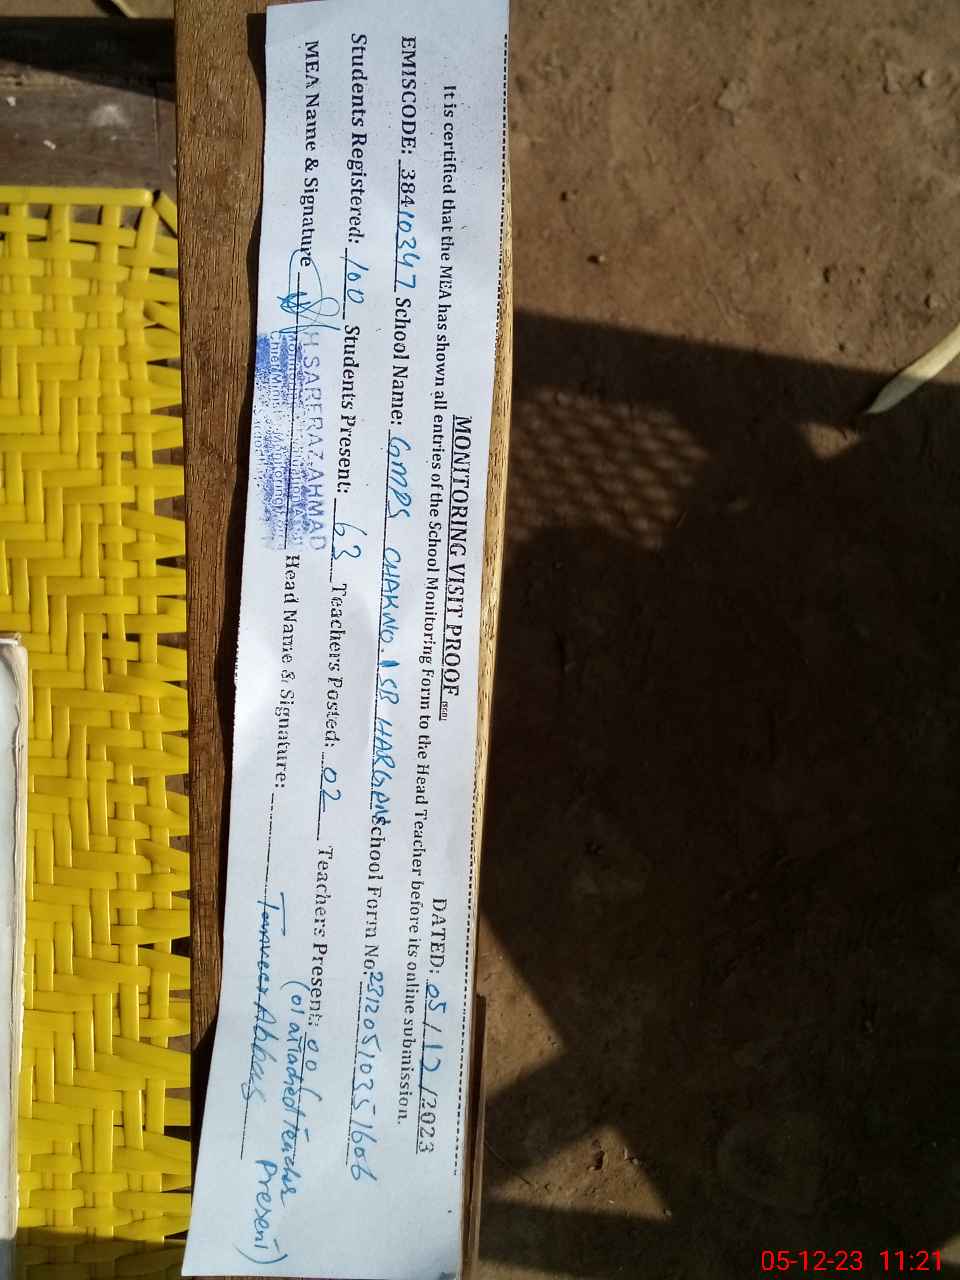 MONITORING VISIT PROOF
DATED: 05/12/2023
It is certified that the MEA has shown all entries of the School Monitoring Form to the Head Teacher before its online submission.
EMISCODE: 38410347 School Name: GMPS CHAK NO. 1 SB HARGANS School Form No. 23120510351606
Students Registered: 100 Students Present: 63 Teachers Posted: 02 Teachers Present: 00 (
(01 attached Teacher Present)
MEA Name & Signature Head Name & Signature: Tanveer Abbas
H.SARFRAZ AHMAD
05-12-23 11:21